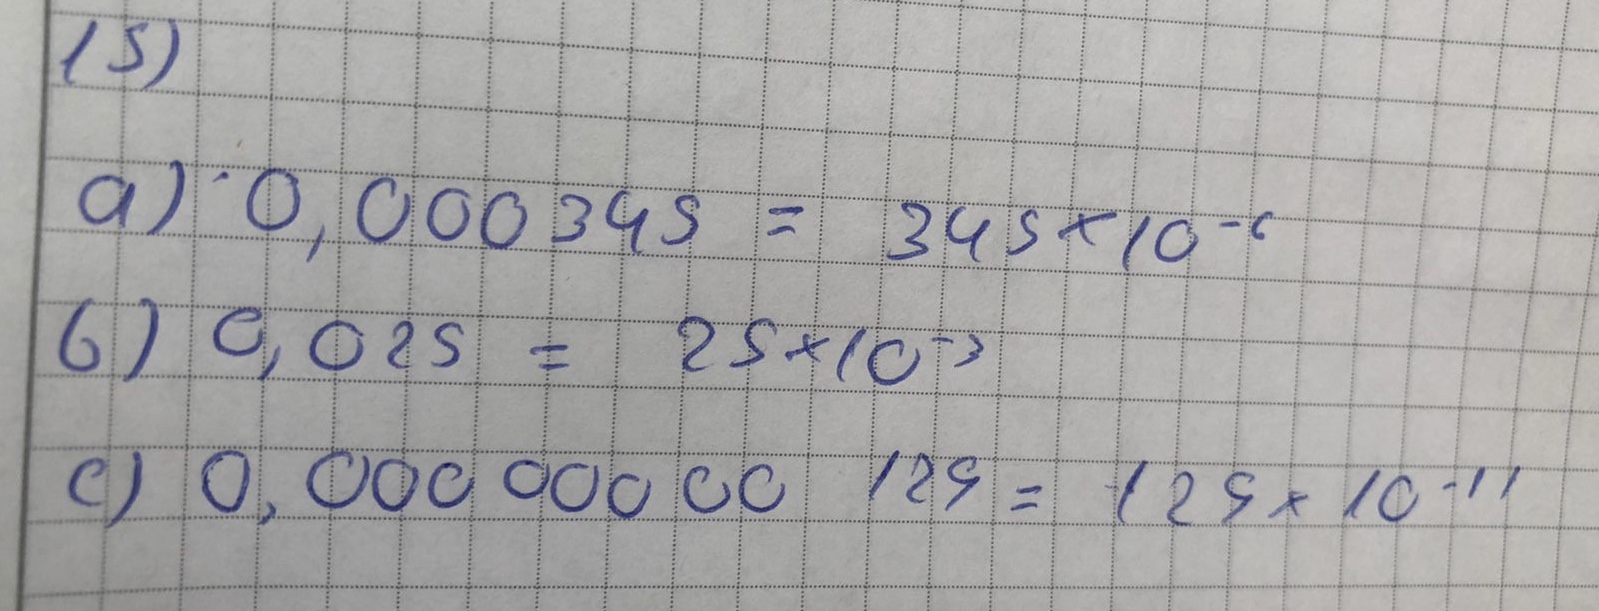 15)
a) 0,000345 = 345×10⁻⁶
b) 0,025 = 25×10⁻³
c) 0,000 000 00 129 = 129×10⁻¹¹